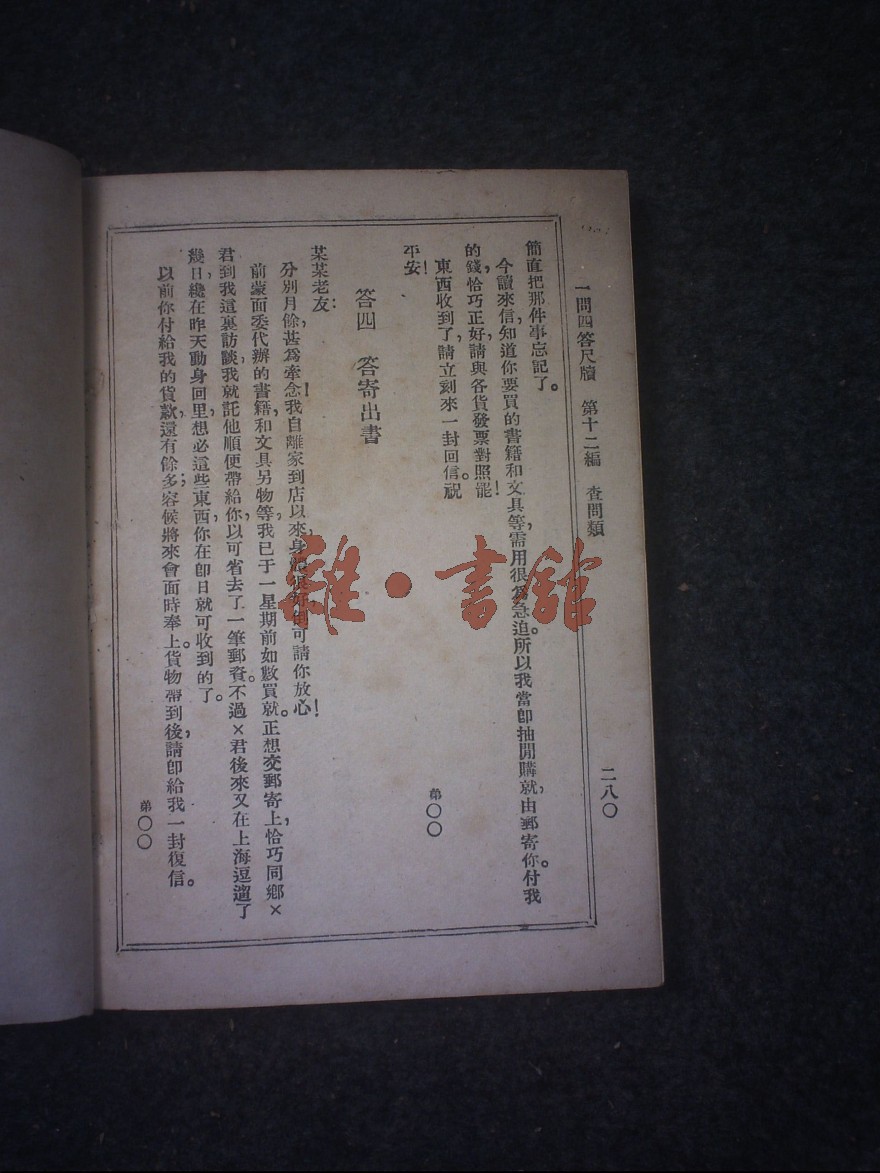 一問四答尺牘　第十二編　查問類　二八〇
簡直把那件事忘記了。
今讀來信，知道你要買的書籍和文具等，需用很爲急迫。所以我當卽抽閒購就，由郵寄你。付我
的錢，恰巧正好，請與各貨發票對照罷！
東西收到了，請立刻來一封回信。祝
平安！
弟〇〇
答四　答寄出書
某某老友：
分別月餘，甚爲牽念！我自離家到店以來，身可請你放心！
前蒙面委代辦的書籍和文具另物等，我已于一星期前如數買就。正想交郵寄上，恰巧同鄉×
君到我這裏訪談，我就託他順便帶給你，以可省去了一筆郵資。不過×君後來又在上海逗遛了
幾日，纔在昨天動身回里，想必這些東西，你在卽日就可收到的了。
以前你付給我的貨款，還有餘多；容候將來會面時奉上。貨物帶到後，請卽給我一封復信。
弟〇〇
雜·書館